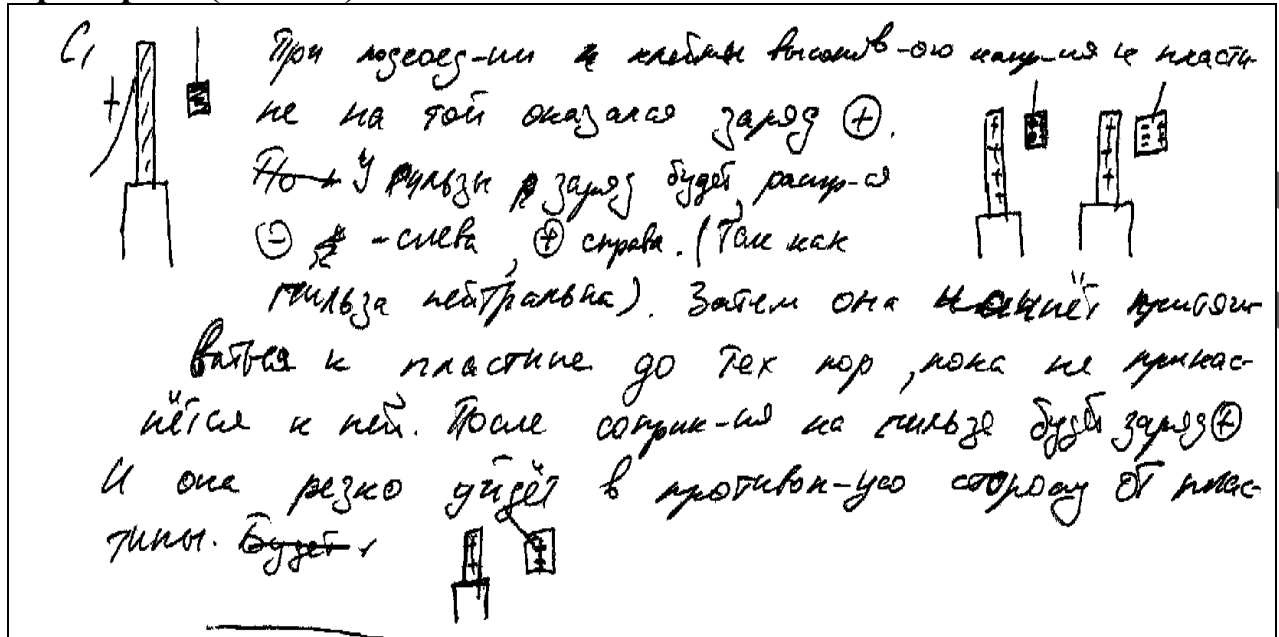 С1
При подсоед-ии к клемм высоков-ого напр-ия к пласти-
не на той оказался заряд ⊕.
У гильзы заряд будет распр-ся
⊖ -слева, ⊕ справа. (Так как
гильза нейтральна). Затем она начнёт притяги-
ваться к пластине до тех пор, пока не прикас-
нётся к ней. После соприк-ия на гильзе будет заряд ⊕
И она резко уйдёт в противоп-ую сторону от плас-
тины. Будет